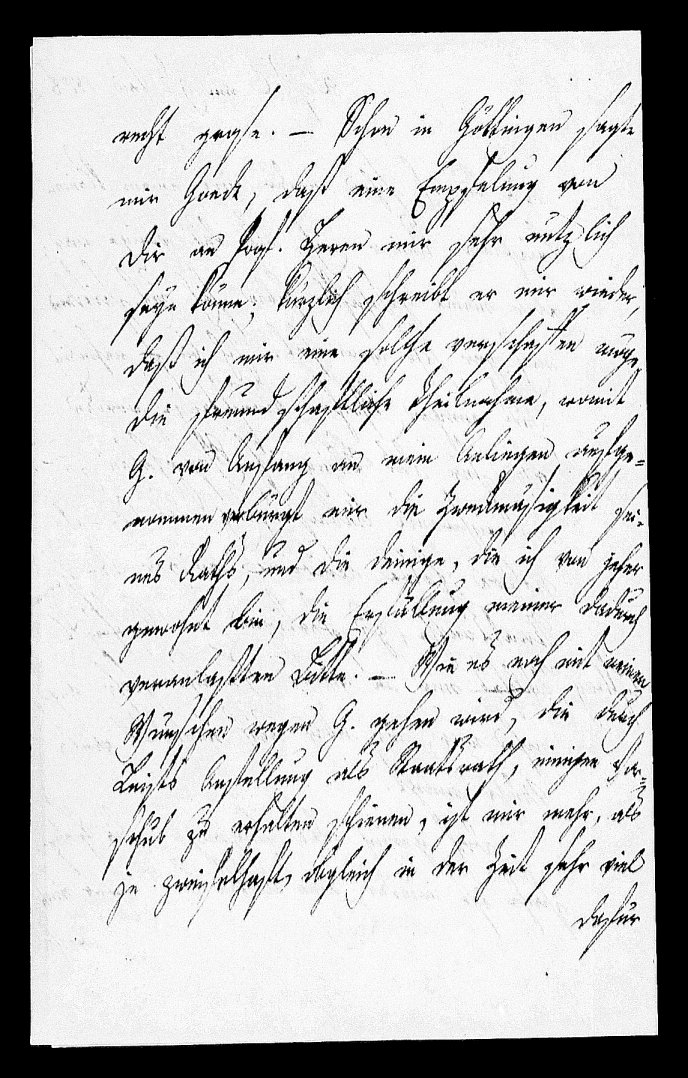 recht große. — Schon in Göttingen sagte
mir Hock, daß eine Empfelung von
Dir an Prof. Heeren mir sehr nutzlich
seyn könne, kurzlich schreibt er mir wieder,
daß ich mir eine solche verschaffen moge,
die freundschaftliche Theilnahme, womit
G. von Anfang an mein Anliegen aufge-
nommen verbürgt mir die Zweckmäsigkeit sei-
nes Raths, und die deinige, die ich von jeher
gewohnt bin, die Erfüllung meiner dadurch
veranlaßten Bitte. — Wie es noch mit meinen
Wunschen wegen G. gehen wird, die durch
Leists Anstellung als Staatsrath, einigen Vor-
schub zu erhalten schienen, ist mir mehr, als
je zweifelhaft, obgleich in der Zeit sehr viel
dafur